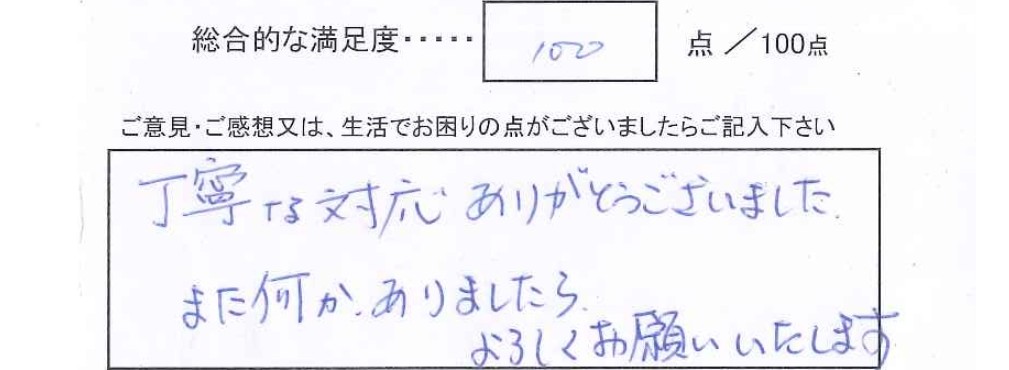 総合的な満足度・・・・・ 100 点 ／100点
ご意見・ご感想又は、生活でお困りの点がございましたらご記入下さい
丁寧な対応ありがとうございました.
また何か、ありましたら.
よろしくお願いいたします